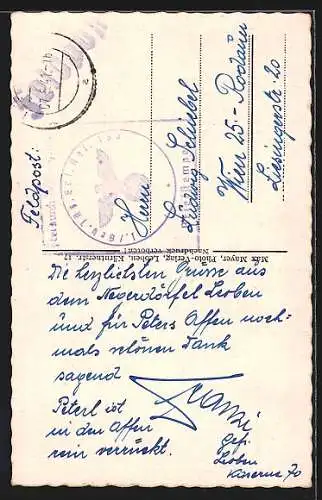 Feldpost:
Herrn
Ludwig Scheibel
Wien 25.- Rodaun
Liesingerstr. 20
Max Mayer, Photo-Verlag, Leoben, Kärntnerstr.
Nachdruck verboten!
Die herzlichsten Grüsse aus
dem Negerdörfel Leoben
und für Peters Affen noch-
mals schönen Dank
sagend
Peterl ist
in den Affen
rein verrückt.
Hansi
Gefr.
Leoben
Kaserne 70